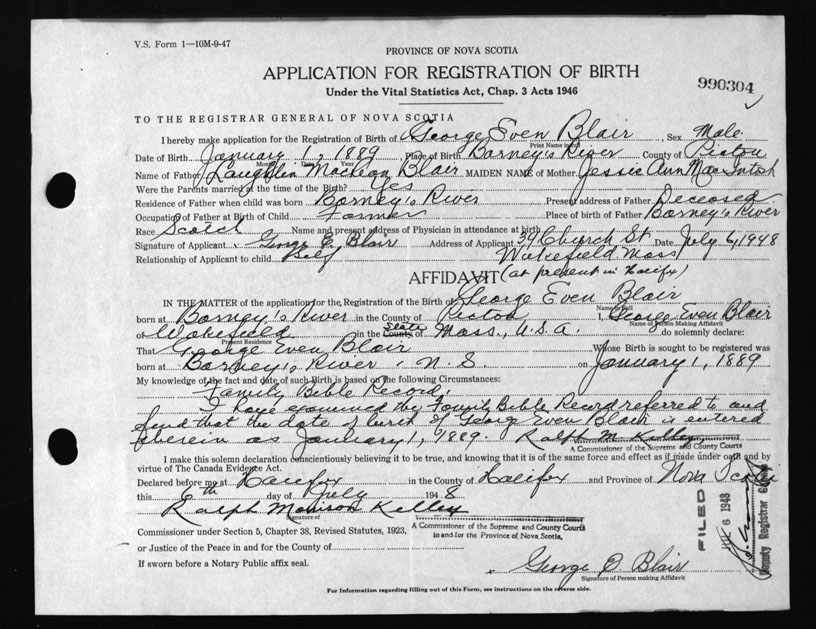 V.S. Form 1—10M-9-47
PROVINCE OF NOVA SCOTIA
APPLICATION FOR REGISTRATION OF BIRTH
Under the Vital Statistics Act, Chap. 3 Acts 1946
990304
TO THE REGISTRAR GENERAL OF NOVA SCOTIA
I hereby make application for the Registration of Birth of George Even Blair Sex Male
Print Name in full
Date of Birth January 1, 1889 Place of Birth Barney's River County of Pictou
Month Day Year
Name of Father Laughlin Maclean Blair MAIDEN NAME of Mother Jessie Ann MacIntosh
Were the Parents married at the time of the Birth? Yes
Residence of Father when child was born Barney's River Present address of Father Deceased
Occupation of Father at Birth of Child Farmer Place of birth of Father Barney's River
Race Scotch Name and present address of Physician in attendance at birth
Signature of Applicant George E. Blair Address of Applicant 39 Church St Date July 6, 1948
Relationship of Applicant to child Self Wakefield Mass
AFFIDAVIT (at present in Halifax)
IN THE MATTER of the application for the Registration of the Birth of George Even Blair
Name in full
born at Barney's River in the County of Pictou I, George Even Blair
Name of Person Making Affidavit
of Wakefield in the County of State Mass., U.S.A. do solemnly declare:
Present Residence
That George Even Blair Whose Birth is sought to be registered was
born at Barney's River, N.S. on January 1, 1889
My knowledge of the fact and date of such Birth is based on the following Circumstances:
Family Bible Record
I have examined the Family Bible Record referred to and
find that the date of birth of George Even Blair is entered
therein as January 1, 1889. Ralph M Kelley
A Commissioner of the Supreme and County Courts
I make this solemn declaration conscientiously believing it to be true, and knowing that it is of the same force and effect as if made under oath and by
virtue of The Canada Evidence Act.
Declared before me at Halifax in the County of Halifax and Province of Nova Scotia
this 6th day of July 1948
Ralph Morrison Kelley
Signature of
A Commissioner of the Supreme and County Courts
in and for the Province of Nova Scotia,
Commissioner under Section 5, Chapter 38, Revised Statutes, 1923,
or Justice of the Peace in and for the County of
If sworn before a Notary Public affix seal.
George E. Blair
Signature of Person making Affidavit
For Information regarding filling out of this Form, see instructions on the reverse side.
FILED
6 1948
Deputy Registrar General